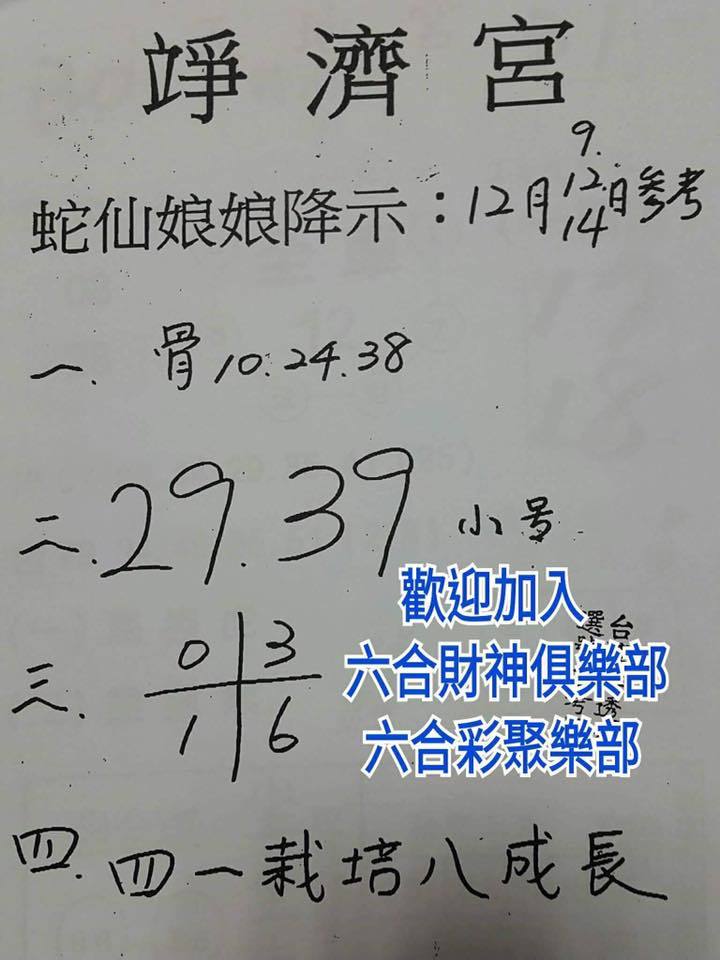 竫濟宮
9.
蛇仙娘娘降示：12月12.日参考
14
一、骨10.24.38
二.29.39小号
歡迎加入
選台
六合財神俱樂部
三.
0 3
1 6
六合彩聚樂部
四.四一栽培八成長